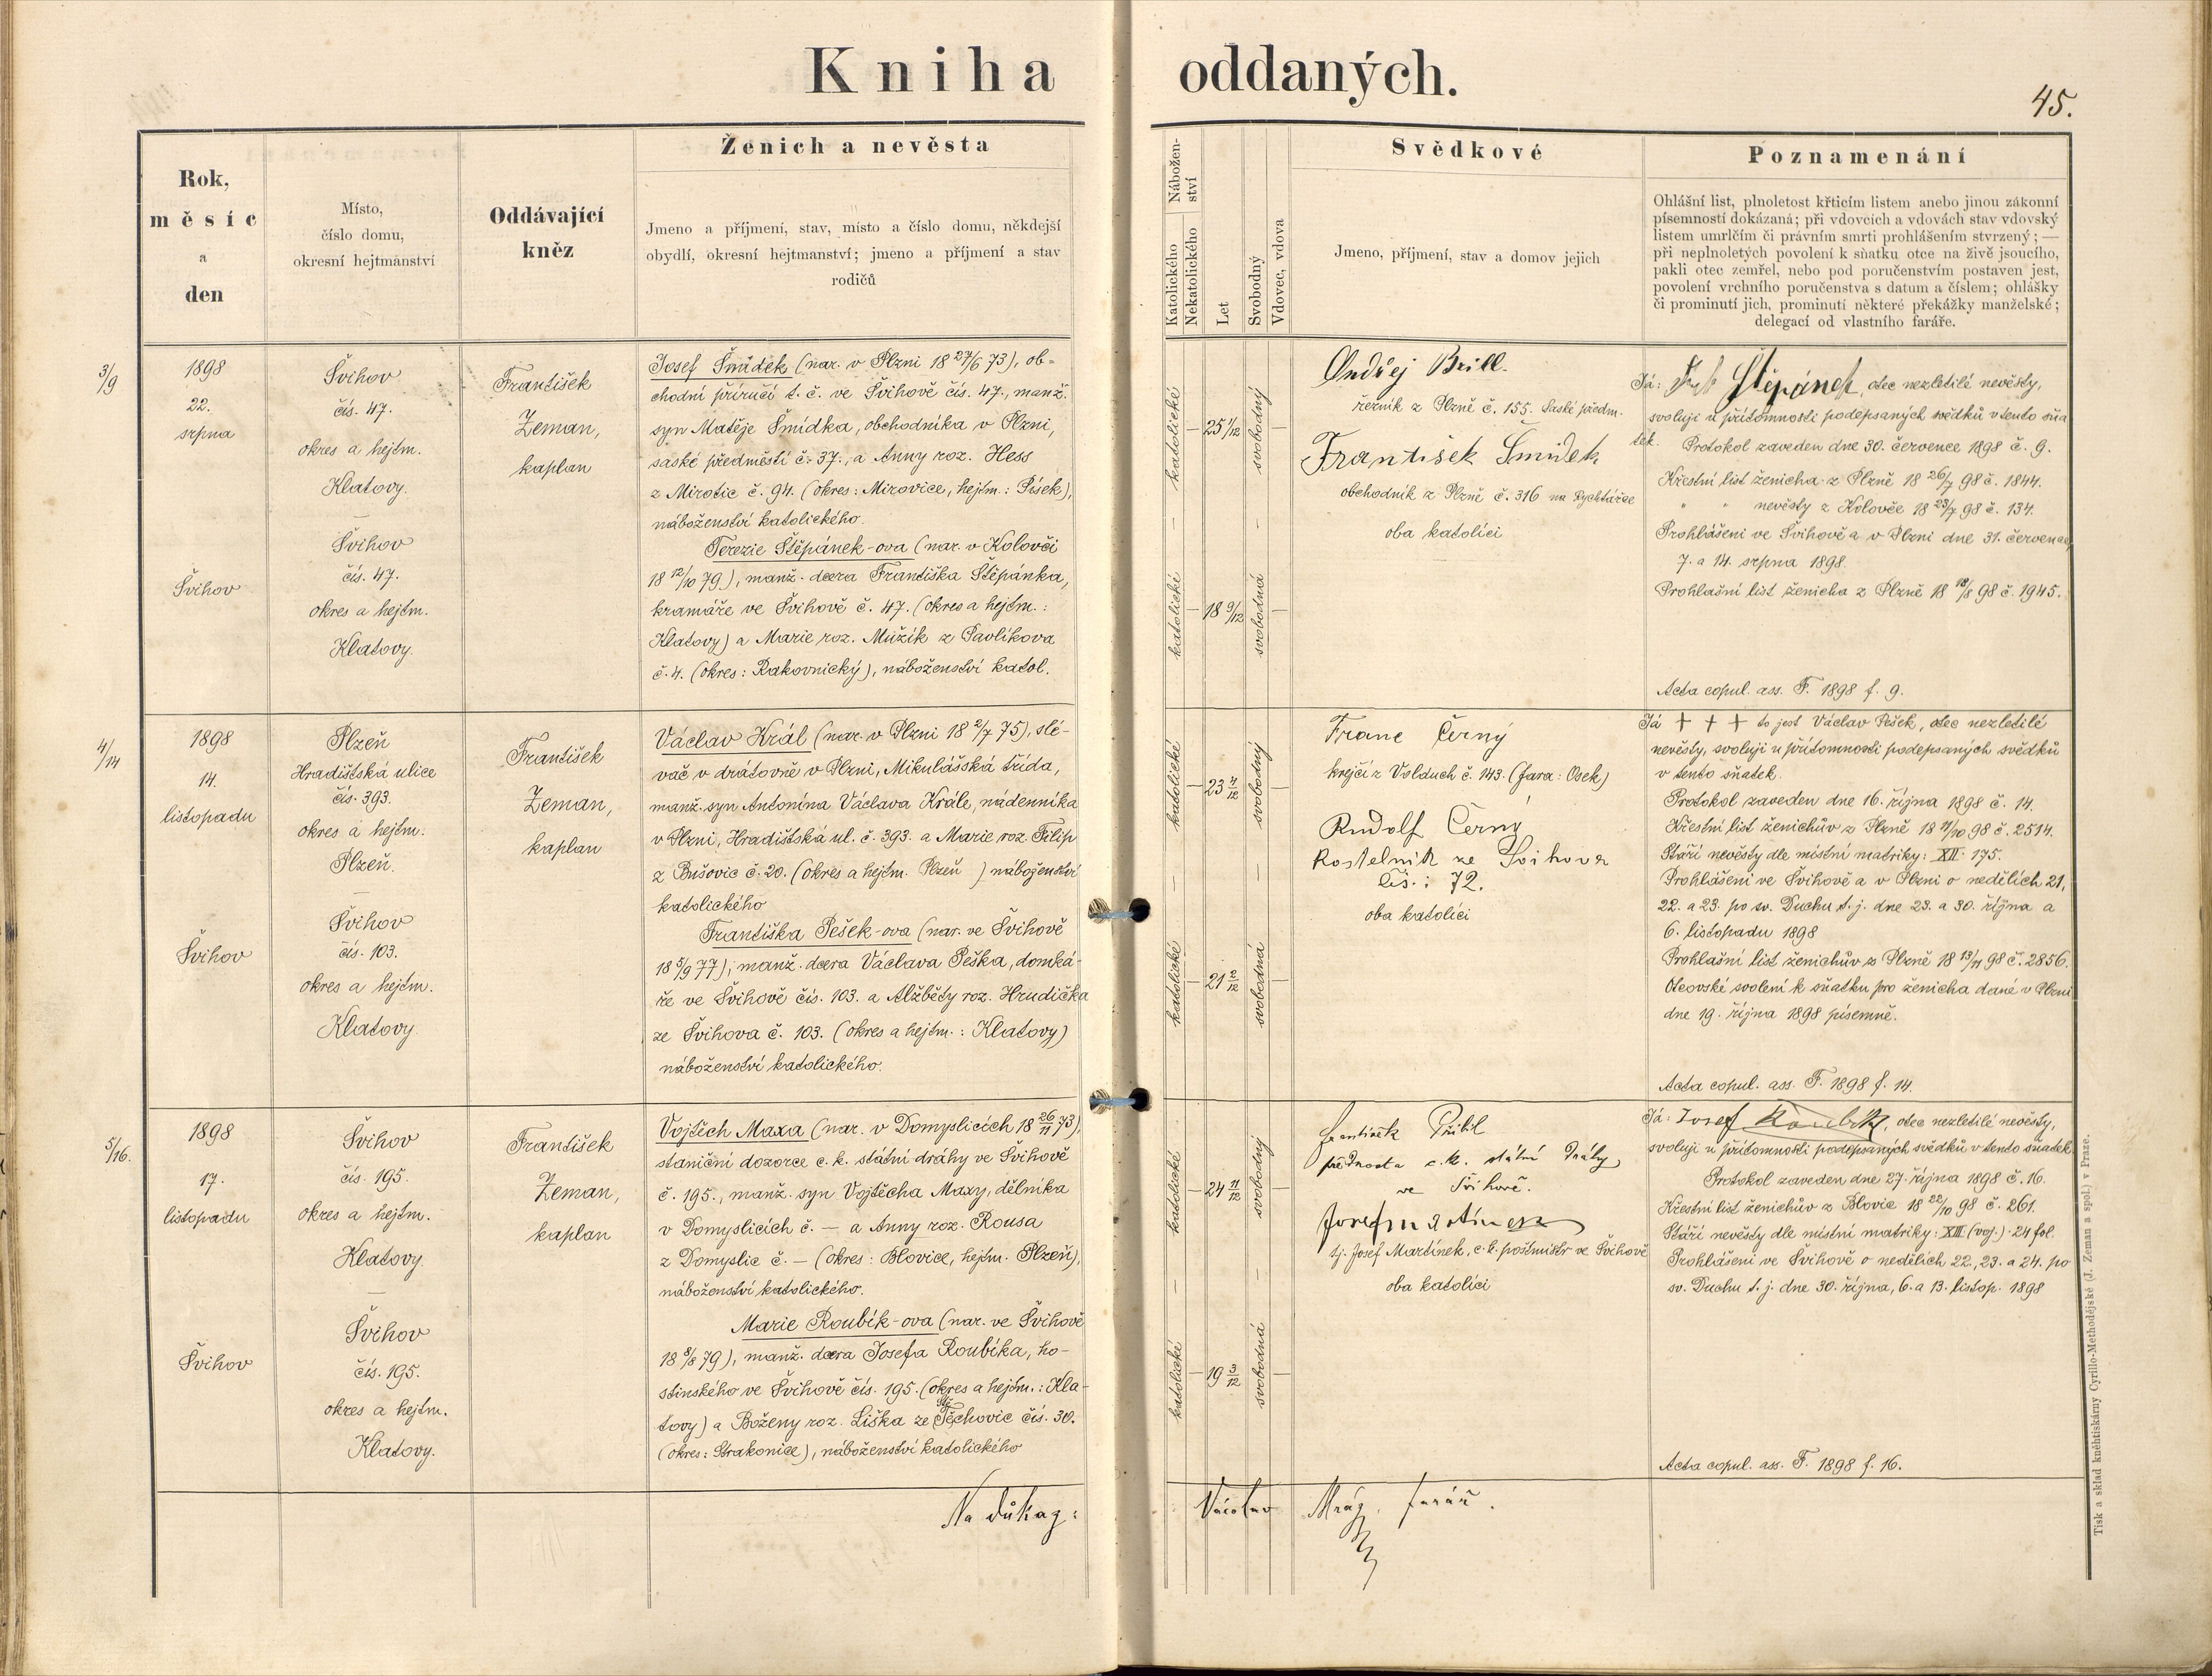 Kniha oddaných.
45.
Rok,
měsíc
a
den
Místo,
číslo domu,
okresní hejtmanství
Oddávající
kněz
Ženich a nevěsta
Jmeno a příjmení, stav, místo a číslo domu, někdejší
obydlí, okresní hejtmanství; jmeno a příjmení a stav
rodičů
Nábožen-
ství
Katolického
Nekatolického
Let
Svobodný
Vdovec, vdova
Svědkové
Jmeno, příjmení, stav a domov jejich
Poznamenání
Ohlášní list, plnoletost křticím listem anebo jinou zákonní
písemností dokázaná; při vdovcích a vdovách stav vdovský
listem umrlčím či právním smrti prohlášením stvrzený; —
při neplnoletých povolení k sňatku otce na živě jsoucího,
pakli otec zemřel, nebo pod poručenstvím postaven jest,
povolení vrchního poručenstva s datum a číslem; ohlášky
či prominutí jich, prominutí některé překážky manželské;
delegací od vlastního faráře.
3/9
1898
22.
srpna
Švihov
Švihov
čís. 47.
okres a hejtm.
Klatovy.
—
Švihov
čís. 47.
okres a hejtm.
Klatovy.
František
Zeman,
kaplan
Josef Šmídek (nar. v Plzni 18 27/6 73), ob-
chodní příručí t. č. ve Švihově čís. 47., manž.
syn Matěje Šmídka, obchodníka v Plzni,
saské předměstí č. 37., a Anny roz. Hess
z Mirotic č. 94. (okres: Mirovice, hejtm.: Písek),
náboženství katolického.
Terezie Štěpánek-ova (nar. v Kolovči
18 12/10 79), manž. dcera Františka Štěpánka,
kramáře ve Švihově č. 47. (okres a hejtm.:
Klatovy) a Marie roz. Mužík z Pavlíkova
č. 4. (okres: Rakovnický), náboženství katol.
katolické
—
katolické
25 1/12
18 9/12
svobodný
—
svobodná
Ondřej Brill.
řezník z Plzně č. 155. Saské předm.
František Šmídek
obchodník z Plzně č. 316 na Rychtářce
oba katolíci
Já: Štěpánek, otec nezletilé nevěsty,
svoluji u přítomnosti podepsaných svědků v tento sňa
tek. Protokol zaveden dne 30. července 1898 č. 9.
Křestní list ženicha z Plzně 18 26/7 98 č. 1844.
" " nevěsty z Kolovče 18 23/7 98 č. 134.
Prohlášeni ve Švihově a v Plzni dne 31. července,
7. a 14. srpna 1898.
Prohlašní list ženicha z Plzně 18 18/8 98 č. 1945.
Acta copul. ass. F. 1898 f. 9.
4/14
1898
14.
listopadu
Švihov
Plzeň
Hradištská ulice
čís. 393.
okres a hejtm.
Plzeň.
—
Švihov
čís. 103.
okres a hejtm.
Klatovy.
František
Zeman,
kaplan
Václav Král (nar. v Plzni 18 2/7 75), slé-
vač v drátovně v Plzni, Mikulášská třída,
manž. syn Antonína Václava Krále, nádenníka
v Plzni, Hradištská ul. č. 393. a Marie roz. Filip
z Bušovic č. 20. (okres a hejtm. Plzeň ) náboženství
katolického
Františka Pešek-ova (nar. ve Švihově
18 5/9 77), manž. dcera Václava Peška, domká-
ře ve Švihově čís. 103. a Alžběty roz. Hrudička
ze Švihova č. 103. (okres a hejtm.: Klatovy)
náboženství katolického.
katolické
—
katolické
23 4/12
21 2/12
svobodný
—
svobodná
Franc Černý
krejčí z Volduch č. 143. (fara: Osek)
Rudolf Černý
Kostelník ze Švihova
čís.: 72.
oba katolíci
Já + + + to jest Václav Pešek, otec nezletilé
nevěsty, svoluji u přítomnosti podepsaných svědků
v tento sňatek.
Protokol zaveden dne 16. října 1898 č. 14.
Křestní list ženichův z Plzně 18 11/10 98 č. 2514.
Stáří nevěsty dle místní matriky: XII. 175.
Prohlášeni ve Švihově a v Plzni o nedělích 21,
22. a 23. po sv. Duchu t. j. dne 23. a 30. října a
6. listopadu 1898
Prohlašní list ženichův z Plzně 18 13/11 98 č. 2856.
Otcovské svolení k sňatku pro ženicha dané v Plzni
dne 19. října 1898 písemně.
Acta copul. ass. F. 1898 f. 14.
5/16.
1898
17.
listopadu
Švihov
Švihov
čís. 195.
okres a hejtm.
Klatovy.
—
Švihov
čís. 195.
okres a hejtm.
Klatovy.
František
Zeman,
kaplan
Vojtěch Maxa (nar. v Domyslicích 18 26/11 73),
staniční dozorce c. k. státní dráhy ve Švihově
č. 195., manž. syn Vojtěcha Maxy, dělníka
v Domyslicích č. — a Anny roz. Rousa
z Domyslic č. — (okres: Blovice, hejtm. Plzeň),
náboženství katolického.
Marie Roubík-ova (nar. ve Švihově
18 8/8 79), manž. dcera Josefa Roubíka, ho-
stinského ve Švihově čís. 195. (okres a hejtm.: Kla-
tovy) a Boženy roz. Liška ze Těchovic čís. 30.
(okres: Strakonice), náboženství katolického
katolické
—
katolické
24 11/12
19 3/12
svobodný
—
svobodná
František Přibil
přednosta c. k. státní dráhy
ve Švihově.
Josef Martínek
tj. Josef Martínek, c. k. poštmistr ve Švihově
oba katolíci
Já: Josef Roubík, otec nezletilé nevěsty,
svoluji u přítomnosti podepsaných svědků v tento sňatek
Protokol zaveden dne 27. října 1898 č. 16.
Křestní list ženichův z Blovic 18 22/10 98 č. 261.
Stáří nevěsty dle místní matriky: XIII (voj.) 24 fol.
Prohlášeni ve Švihově o nedělích 22, 23. a 24. po
sv. Duchu t. j. dne 30. října, 6. a 13. listop. 1898
Acta copul. ass. F. 1898 f. 16.
Na důkaz: Václav Mráz, farář.
Tisk a sklad kněhtiskárny Cyrillo-Methodějské (J. Zeman a spol.) v Praze.